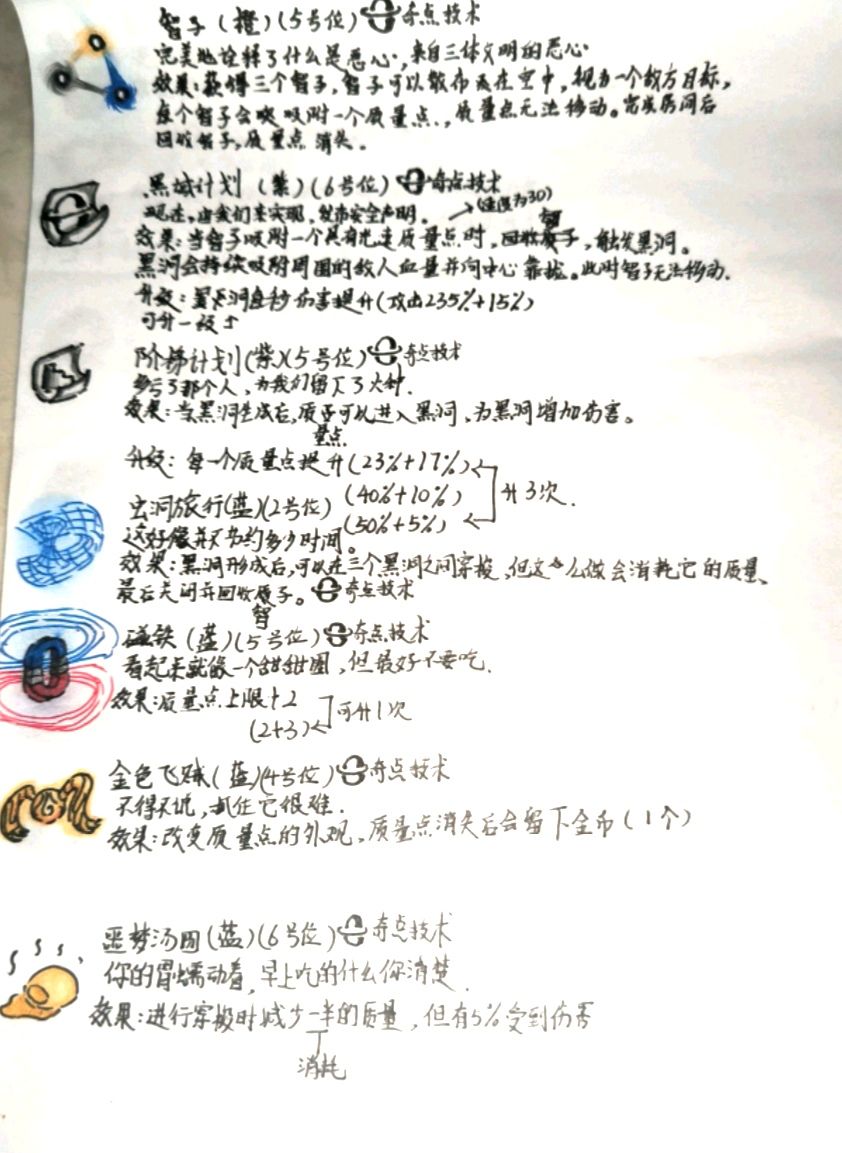 智子(橙)(5号位) 奇点技术
完美地诠释了什么是恶心,来自三体文明的恶心
效果:获得三个智子,智子可以散布在空中,视为一个敌方目标,
每个智子会吸附一个质量点,质量点无法移动。完成房间后
回收智子,质量点 消失。
黑域计划 (紫)(6号位) 奇点技术
现在,由我们来实现,发布安全声明。 →(速度为30)
效果:当智子吸附一个具有光速质量点时,回收智子,触发黑洞。
黑洞会持续吸附周围的敌人血量并向中心靠拢。此时智子无法移动.
升级:黑洞每秒伤害提升(攻击235%+15%)
可升一级↑
阶梯计划(紫)(5号位) 奇点技术
多亏了那个人,为我们留下了火种.
效果:当黑洞生成后,质量点可以进入黑洞,为黑洞增加伤害。
升级:每一个质量点提升(23%+17%)
(40%+10%) 升3次.
(50%+5%)
虫洞旅行(蓝)(2号位)
这好像并不节约多少时间。
效果:黑洞形成后,可以在三个黑洞之间穿梭,但这么做会消耗它的质量、
最后关闭并回收智子。 奇点技术
磁铁(蓝)(5号位) 奇点技术
看起来就像一个甜甜圈,但最好不要吃.
效果:质量点上限+2
(2+3) 可升1次
金色飞贼(蓝)(4号位) 奇点技术
不得不说,抓住它很难.
效果:改变质量点的外观,质量点消失后会留下金币(1个)
噩梦汤圆(蓝)(6号位) 奇点技术
你的胃蠕动着,早上吃的什么你清楚.
效果:进行穿梭时减少一半的质量,但有5%受到伤害
消耗